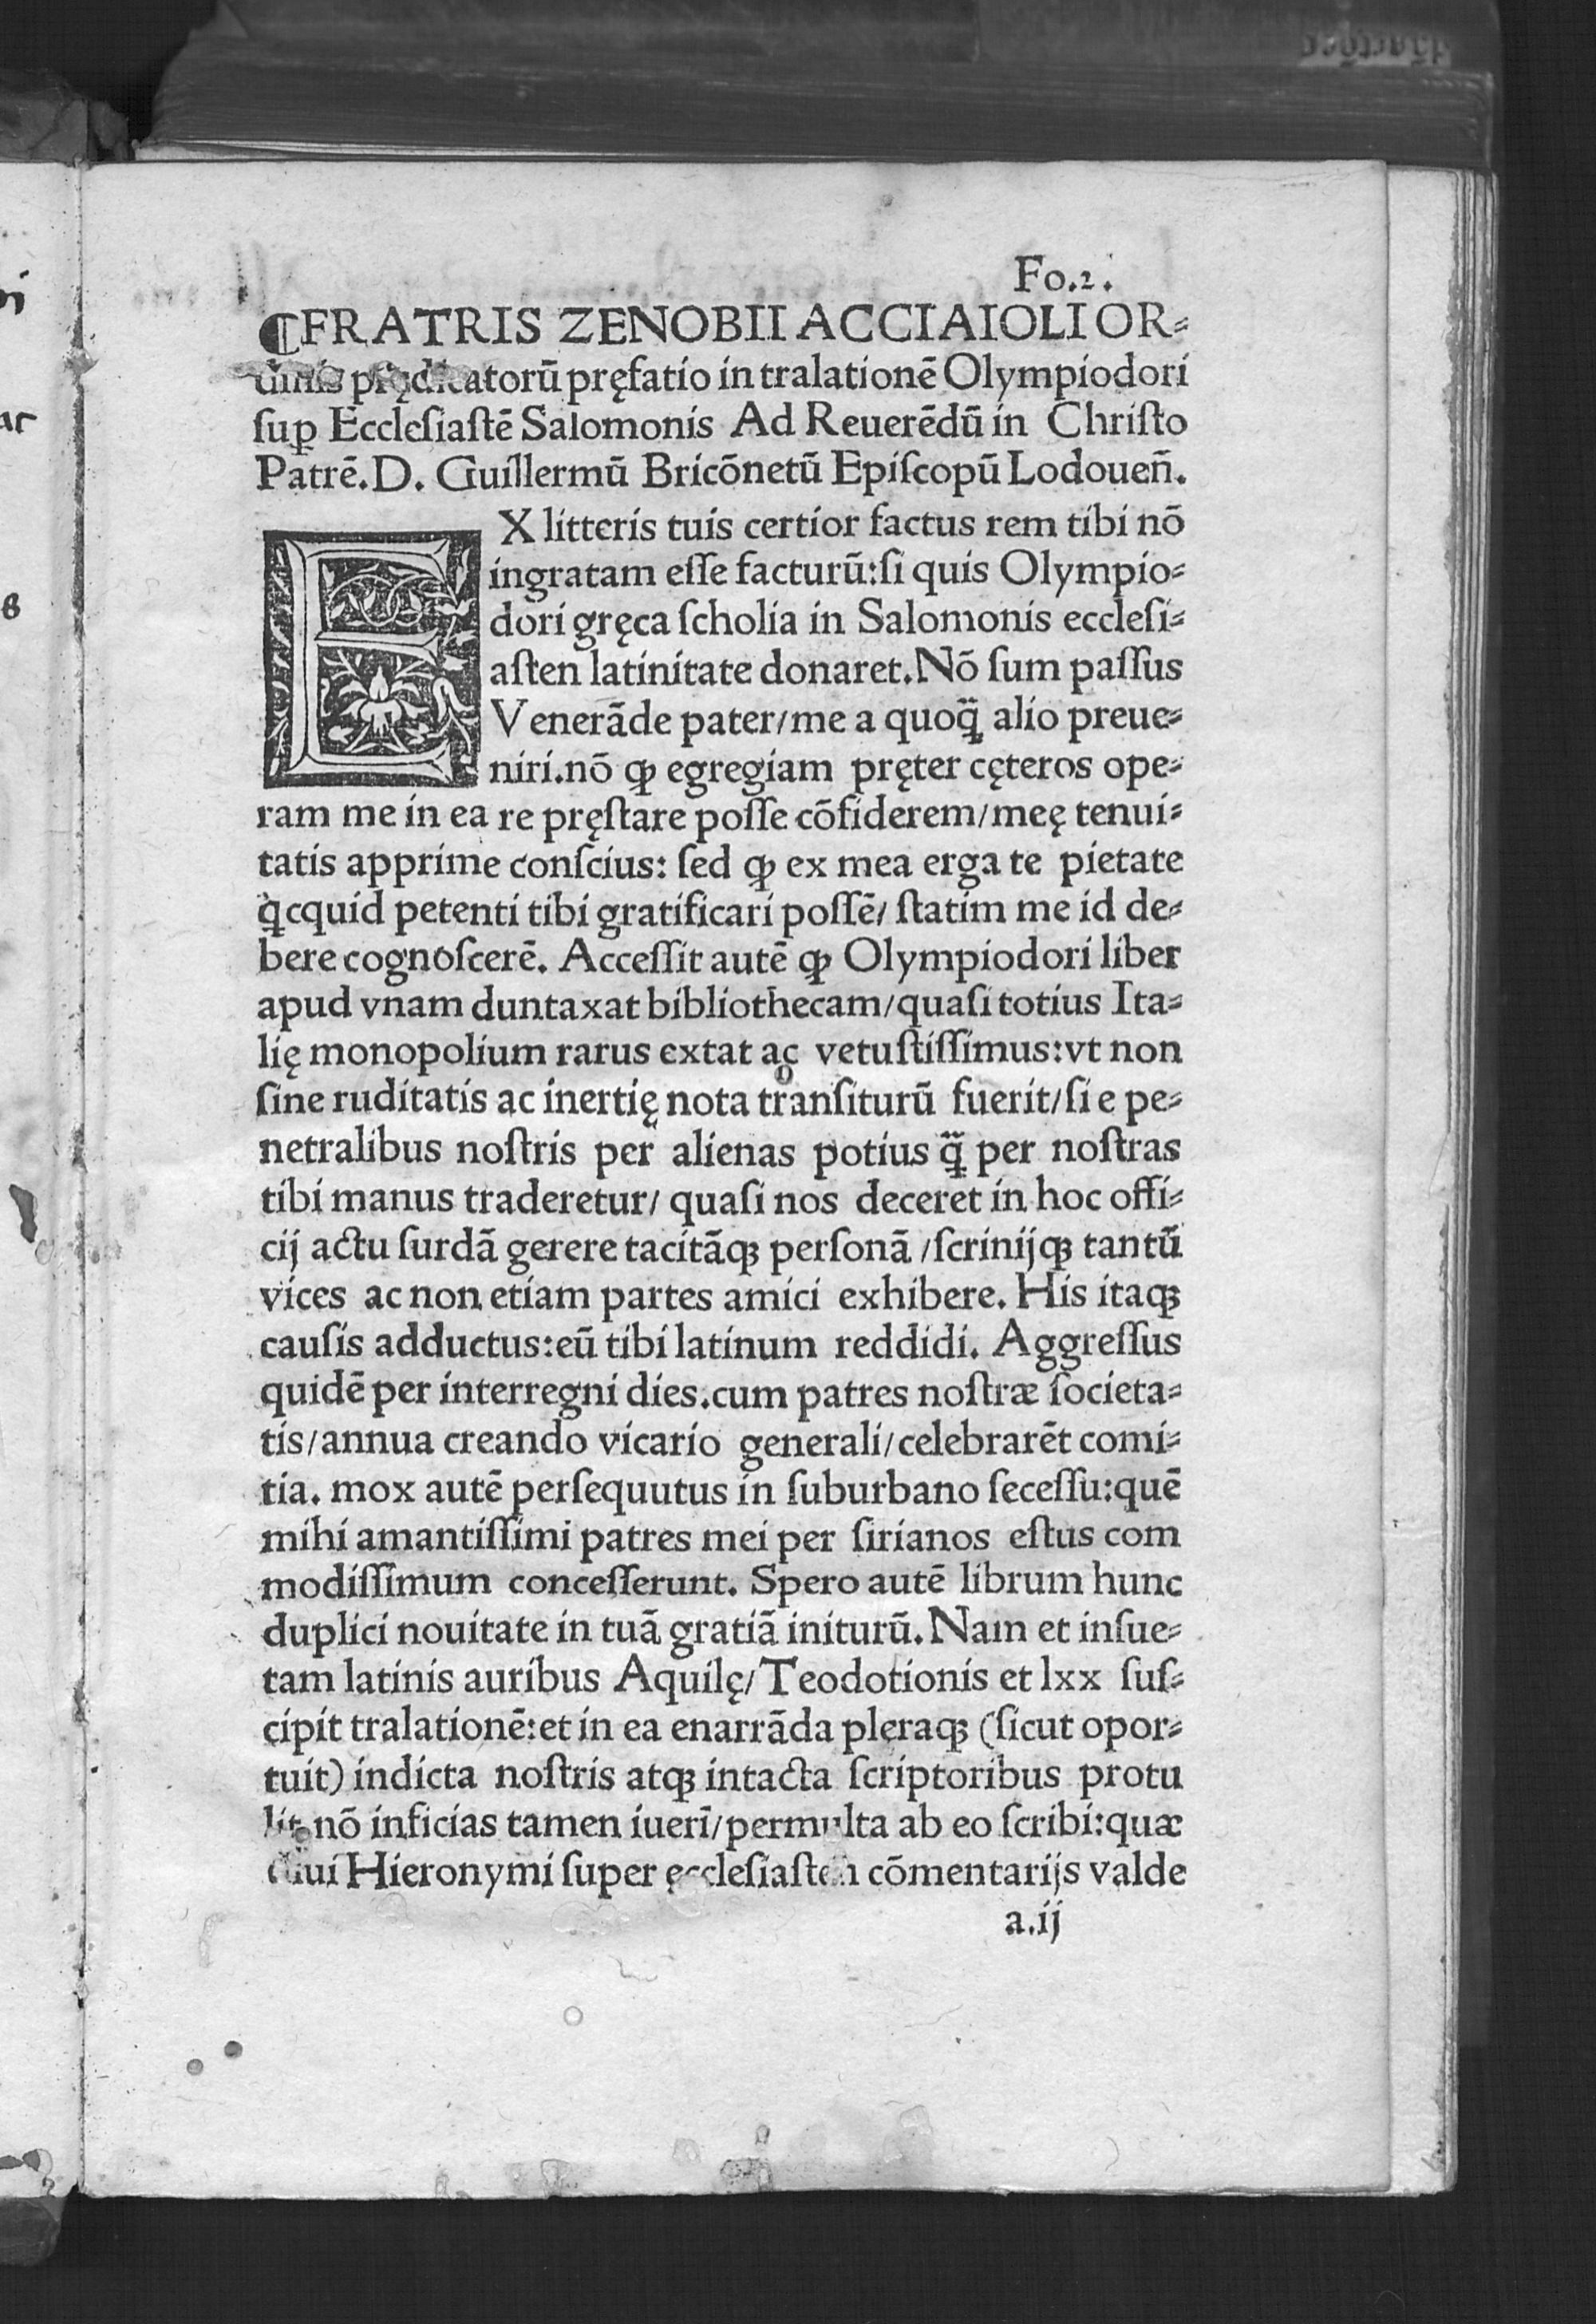 Fo.2.
¶FRATRIS ZENOBII ACCIAIOLI OR-
dinis prędicatorū pręfatio in tralationē Olympiodori
ſuꝑ Eccleſiaſtē Salomonis Ad Reuerēdū in Chriſto
Patrē.D. Guillermū Bricōnetū Epiſcopū Lodoueñ.
EX litteris tuis certior factus rem tibi nō
ingratam eſſe facturū:ſi quis Olympio-
dori gręca ſcholia in Salomonis eccleſi-
aſten latinitate donaret.Nō ſum paſſus
Venerāde pater/me a quoq̃ alio preue-
niri.nō ꝙ egregiam pręter cęteros ope-
ram me in ea re pręſtare poſſe cōfiderem/meę tenui-
tatis apprime conſcius: ſed ꝙ ex mea erga te pietate
qͥcquid petenti tibi gratificari poſſē/ ſtatim me id de-
bere cognoſcerē. Acceſſit autē ꝙ Olympiodori liber
apud vnam duntaxat bibliothecam/quaſi totius Ita-
lię monopolium rarus extat ac vetuſtiſſimus:vt non
ſine ruditatis ac inertię nota tranſiturū fuerit/ſi e pe-
netralibus noſtris per alienas potius q̃ per noſtras
tibi manus traderetur/ quaſi nos deceret in hoc offi-
cij actu ſurdā gerere tacitāqꝫ perſonā /ſcrinijqꝫ tantū
vices ac non etiam partes amici exhibere. His itaqꝫ
cauſis adductus:eū tibi latinum reddidi. Aggreſſus
quidē per interregni dies.cum patres noſtræ ſocieta-
tis/annua creando vicario generali/celebrarēt comi-
tia. mox autē perſequutus in ſuburbano ſeceſſu:quē
mihi amantiſſimi patres mei per ſirianos eſtus com
modiſſimum conceſſerunt. Spero autē librum hunc
duplici nouitate in tuā gratiā initurū. Nam et inſue-
tam latinis auribus Aquilę/Teodotionis et lxx ſuſ-
cipit tralationē:et in ea enarrāda pleraqꝫ (ſicut opor-
tuit) indicta noſtris atqꝫ intacta ſcriptoribus protu
lit.nō inficias tamen iuerī/permulta ab eo ſcribi:quæ
diui Hieronymi ſuper eccleſiaſten cōmentarijs valde
a.ij